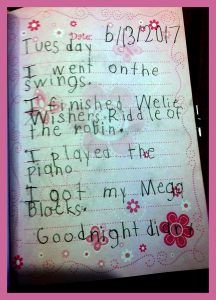 Date: 6/13/2017
Tuesday
I went on the
swings.
I finished Welie
Wishers: Riddle of
the robin.
I played the
piano
I got my Mega
blocks.
Goodnight diary